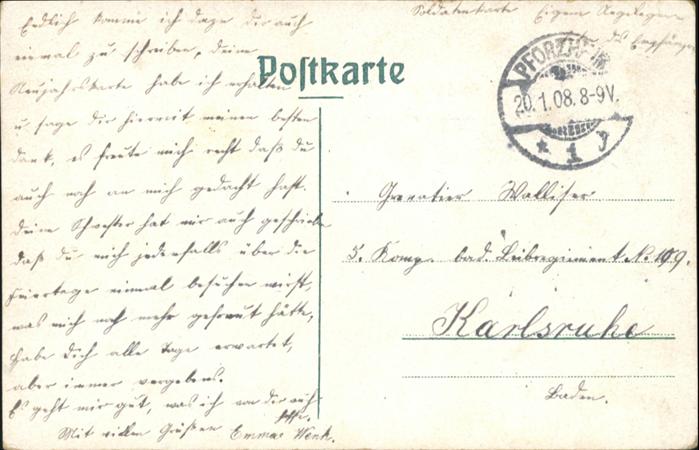 Endlich komme ich dazu dir auch
einmal zu schreiben, deine
Neujahrskarte habe ich erhalten
u. sage dir hiermit meinen besten
dank, es freute mich recht daß du
auch noch an mich gedacht hast.
deine Schwester hat mir auch geschrieben
daß du mich jedenfalls über die
Feiertage einmal besuchen wirst,
was mich noch mehr gefreut hätte,
habe dich alle Tage erwartet,
aber immer vergebens.
Es geht mir gut, was ich von dir auch
hoffe.
Mit vielen Grüßen Emma Wenk.
Soldatenkarte Eigen Angelegen
des Empfänger
Postkarte
PFORZHEIM
20.1.08.8-9V.
* 1 y
Grenatier Walliser
5. Komp. bad. Leibregiment N. 109.
Karlsruhe
Baden.